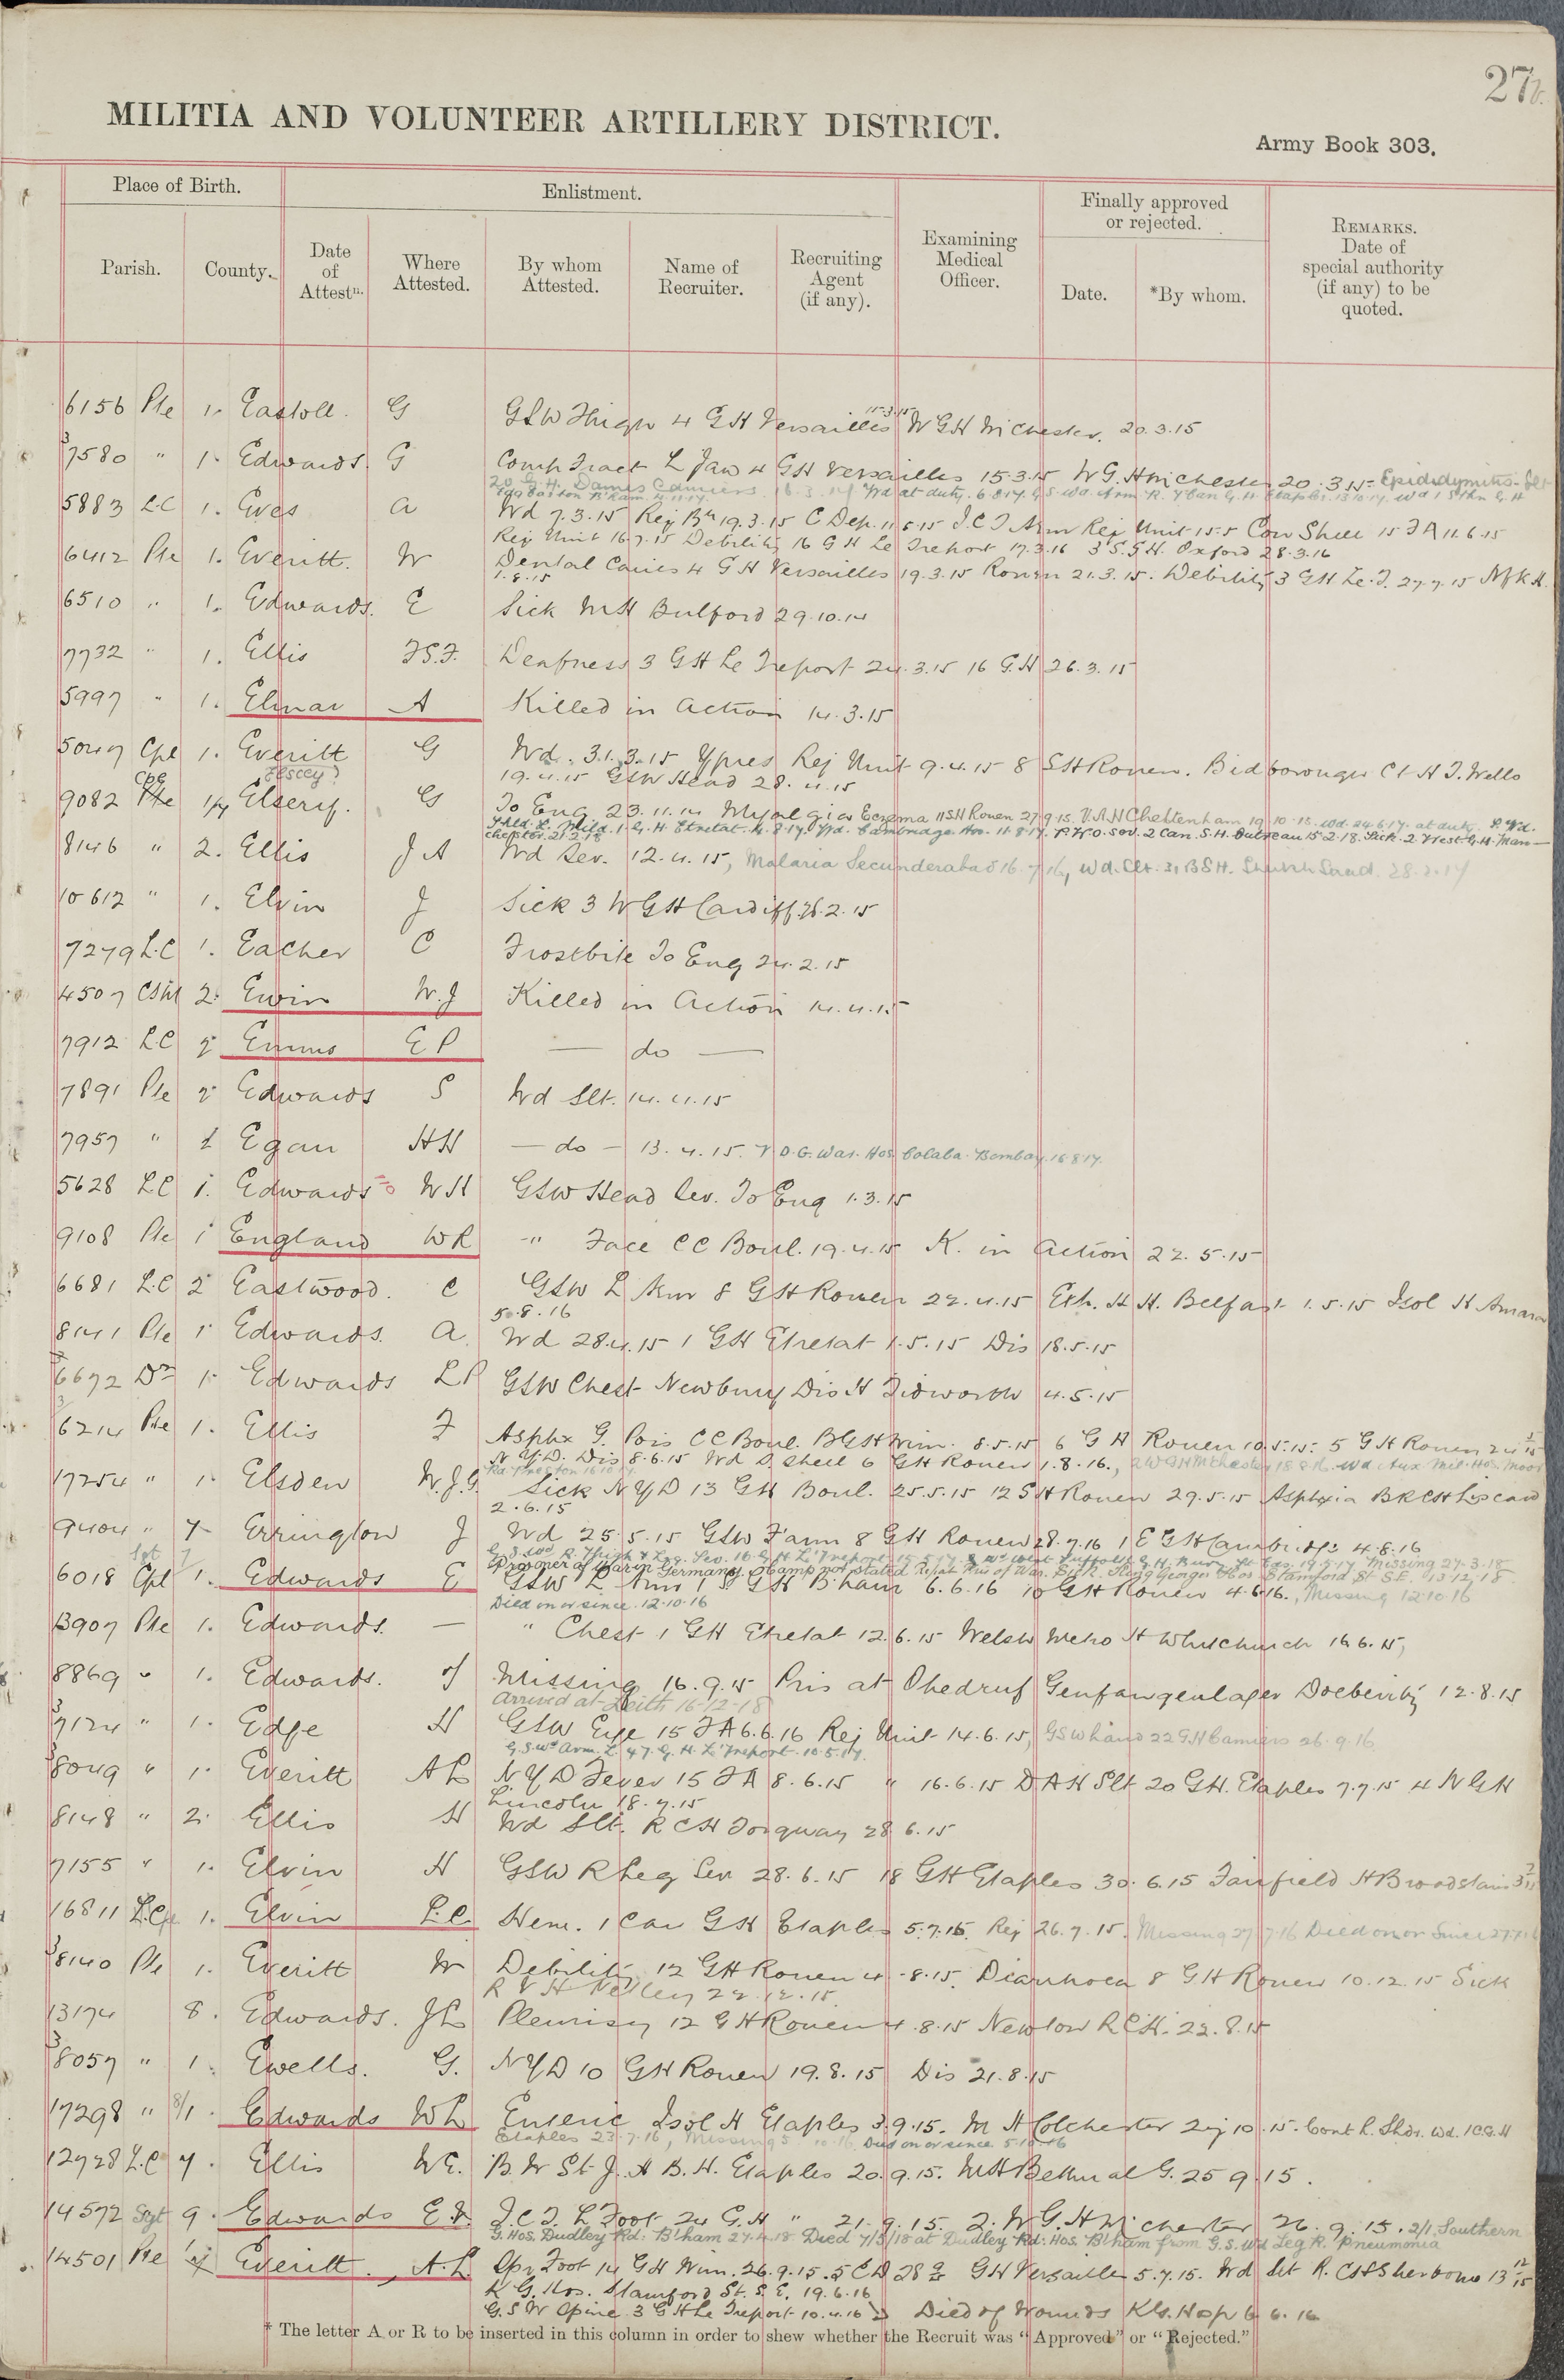 27b.
MILITIA AND VOLUNTEER ARTILLERY DISTRICT.
Army Book 303.
Place of Birth.
Enlistment.
Finally approved or rejected.
Parish.
County.
Date of Attestn.
Where Attested.
By whom Attested.
Name of Recruiter.
Recruiting Agent (if any).
Examining Medical Officer.
Date.
*By whom.
REMARKS. Date of special authority (if any) to be quoted.
6156 Pte 1. Eastoll. G GSW Thigh 4 GH Versailles 15.3.15 W GH M'Chester. 20.3.15
3/7580 " 1. Edwards. G Comp Fract L Jaw 4 GH Versailles 15.3.15 W G. H M'chester 20.3.15 Epididymitis
20 G.H. Dannes Camiers. Wd at duty. 6.8.17. G.S. wd. Arm R. 7 Can G.H. Etaples. 13.10.17. Wd 1 Sthn G.H
Edgbaston B'ham. 4.11.17.
5883 L.C 1. Eves A Wd 7.3.15 Rej Bn 19.3.15 C Dep. 11.5.15 I.C.T Arm Rej Unit 15.5 Con Shell 15 F A 11.6.15
Rej Unit 16.7.15 Debility 16 G H Le Treport 17.3.16 3 S.G.H. Oxford 28.3.16
6412 Pte 1. Everitt. W Dental Caries 4 GH Versailles 19.3.15 Rouen 21.3.15. Debility 3 GH Le.T. 27.7.15
1.8.15
6510 " 1. Edwards. E Sick M H Bulford 29.10.14
7732 " 1. Ellis F.S.F. Deafness 3 GH Le Treport 24.3.15 16 G.H 26.3.15
5997 " 1. Elmar A Killed in Action 14.3.15
5047 Cpl 1. Everitt G Wd. 31.3.15 Ypres Rej Unit 9.4.15 8 SH Rouen. Bidborough Ct H T. Wells
19.4.15 GSW Head 28.4.15
9082 Cpl 1/7 Elsery. G To Eng 23.11.14 Myalgia Eczema 11 SH Rouen 27.9.15. V.A.H Cheltenham 19.10.15. Wd. 24.6.17. at duty.
Shld. L. Mild. 1. G. H. Etretat. 4.8.17. Wd. Cambridge Hos. 11.8.17. P.U.O. Sev. 2 Can. S.H. Outreau 15.2.18. Sick. 2 West G.H. Man-
chester. 21.2.18
8146 " 2. Ellis J A Wd Sev. 12.4.15, Malaria Secunderabad 16.7.16, Wd. Slt. 31 B S H. Sheikh Saad. 28.2.17
10612 " 1. Elvin J Sick 3 W GH Cardiff 26.2.15
7279 L.C 1. Eacher C Frostbite To Eng 24.2.15
4507 CSM 2. Ewin W.J Killed in Action 14.4.15
7912 L.C 2 Emms E P — do —
7891 Pte 2 Edwards S Wd Slt. 14.4.15
7957 " 1 Egan H H — do — 13.4.15. V D.G. War. Hos Colaba. Bombay. 16.8.17.
5628 L.C 1. Edwards W H GSW Head Sev. To Eng 1.3.15
9108 Pte 1 England W R " Face CC Boul. 19.4.15 K. in Action 22.5.15
6681 L.C 2 Eastwood. C GSW L Arm 8 GH Rouen 22.4.15 Exh. H H. Belfast 1.5.15 Isol H Amara
5.8.16
8141 Pte 1 Edwards. A. Wd 28.4.15 1 GH Etretat 1.5.15 Dis 18.5.15
3/6672 Dr 1. Edwards L P GSW Chest Newbury Dis H Tidworth 4.5.15
3/6214 Pte 1. Ellis F Asphx G. Pois CC Boul. BGSH Wim. 8.5.15 6 G H Rouen 10.5.15. 5 G H Rouen
N.Y.D. Dis 8.6.15 Wd S. Shell 6 GH Rouen 1.8.16.
17254 " 1. Elsden W.J.G. Sick N Y D 13 GH Boul. 25.5.15 12 SH Rouen 29.5.15 Asphyxia B R C H Liscard
2.6.15
9404 " 7 Errington J Wd 25.5.15 GSW F'arm 8 GH Rouen 28.7.16 1 E GH Cambridge 4.8.16
G.S. Wd R. Thigh & Leg. Sev. 16 G.H. Le Treport 15.5.17. West Suffolk G.H. Bury St Eds. 19.5.17 Missing 27.3.18
Prisoner of War in Germany. Camp not stated. Repat. Pris of War. King Georges Hos. Stamford St S.E. 13.12.18
6018 Sgt Cpl 1. Edwards E GSW L Arm 1 S GH B'ham 6.6.16 10 GH Rouen 4.6.16. Missing 12.10.16
Died on or since. 12.10.16
13907 Pte 1. Edwards. — " Chest 1 GH Etretat 12.6.15 Welsh Metro H Whitchurch 16.6.15,
8869 " 1. Edwards. J Missing 16.9.15 Pris at Ohedruf Genfangenlager Doeberitz 12.8.15
Arrived at Leith 16-12-18
3/7124 " 1. Edge H GSW Eye 15 F A 6.6.16 Rej Unit 14.6.15, GSW hand 22 G H Camiers 26.9.16
G.S. Wd Arm. L. 47. G. H. Le Treport. 10.5.17.
3/8049 " 1. Everitt A L N Y D Fever 15 F A 8.6.15 " 16.6.15 D A H Slt 20 GH. Etaples 7.7.15 4 N GH
Lincoln 18.7.15
8148 " 2. Ellis H Wd Slt. R C H Torquay 28.6.15
7155 " 1. Elvin H GSW R Leg Sev 28.6.15 18 GH Etaples 30.6.15 Fairfield H Broadstairs
16811 L.Cpl 1. Elvin L.C. Hem. 1 Can GH Etaples 5.7.15. Rej 26.7.15. Missing 27.7.16 Died on or Since 27.7.16
3/8140 Pte 1. Everitt W Debility 12 GH Rouen 4.8.15. Diarrhoea 8 G H Rouen 10.12.15 Sick
R V H Netley 22.12.15.
13174 8. Edwards. J L Pleurisy 12 G H Rouen 4.8.15 Newton R C H. 22.8.15
3/8057 " 1. Ewells. G. N Y D 10 GH Rouen 19.8.15 Dis 21.8.15
17298 " 8/1. Edwards W L Enteric Isol H Etaples 3.9.15. M H Colchester 10.15. Cont L. Shdr. Wd. 1 C G H
Etaples 23.7.16, Missing 5.10.16, Died on or since 5.10.16
12728 L.C 7. Ellis W E. B. W St J. A B. H. Etaples 20.9.15. M H Bethnal G. 25 9 15.
14572 Sgt 9. Edwards E. I.C.T. L Foot 24 G. H " 21.9.15. 2. W G. H M'chester 26.9.15. 2/1 Southern
G. Hos. Dudley Rd. B'ham 27.4.18 Died 7/5/18 at Dudley Rd. Hos. B'ham from G.S. Wd Leg R. Pneumonia
14501 Pte 7 Everitt. A.L. Opn Foot 14 GH Wim. 26.9.15. 5 C D 28 GH Versailles 5.7.15. Wd Slt R. CH Sherborne 13 12/15
K G. Hos. Stamford St. S. E. 19.6.16
G.S W Spine 3 G H Le Treport 10.4.16 Died of Wounds K G. Hosp 6.6.16
* The letter A or R to be inserted in this column in order to shew whether the Recruit was "Approved" or "Rejected."